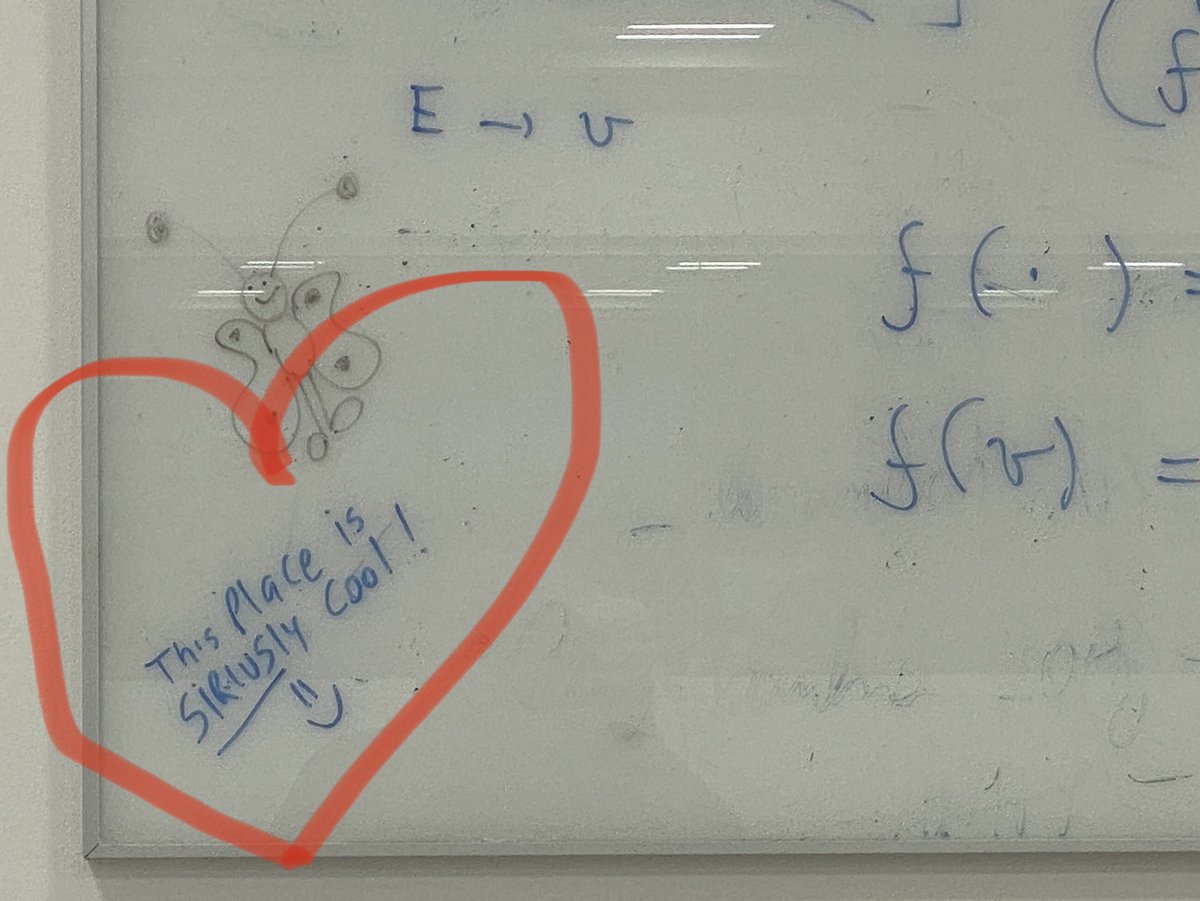 E → v
f(·) =
f(v) =
This place is
SIRIUSLY cool!